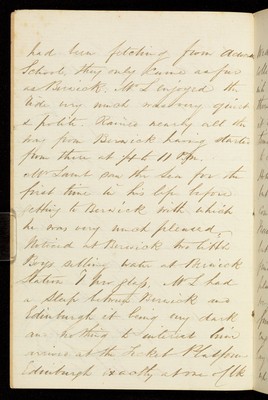 had been fetching from
School, they only came as far
as Berwick. Mr L enjoyed the
ride very much was very quiet
& polite. Rained nearly all the
way from Berwick having started
from there at 11 Pm.
Mr Lamb saw the Sea for the
first time in his life before
getting to Berwick with which
he was very much pleased.
Noticed at Berwick two little
Boys selling water at Berwick
Station glass. Mr L had
a sleep between Berwick and
Edinburgh it being very dark
and nothing to interest him
arrived at the Ticket Platform
Edinburgh exactly at one o'Clk